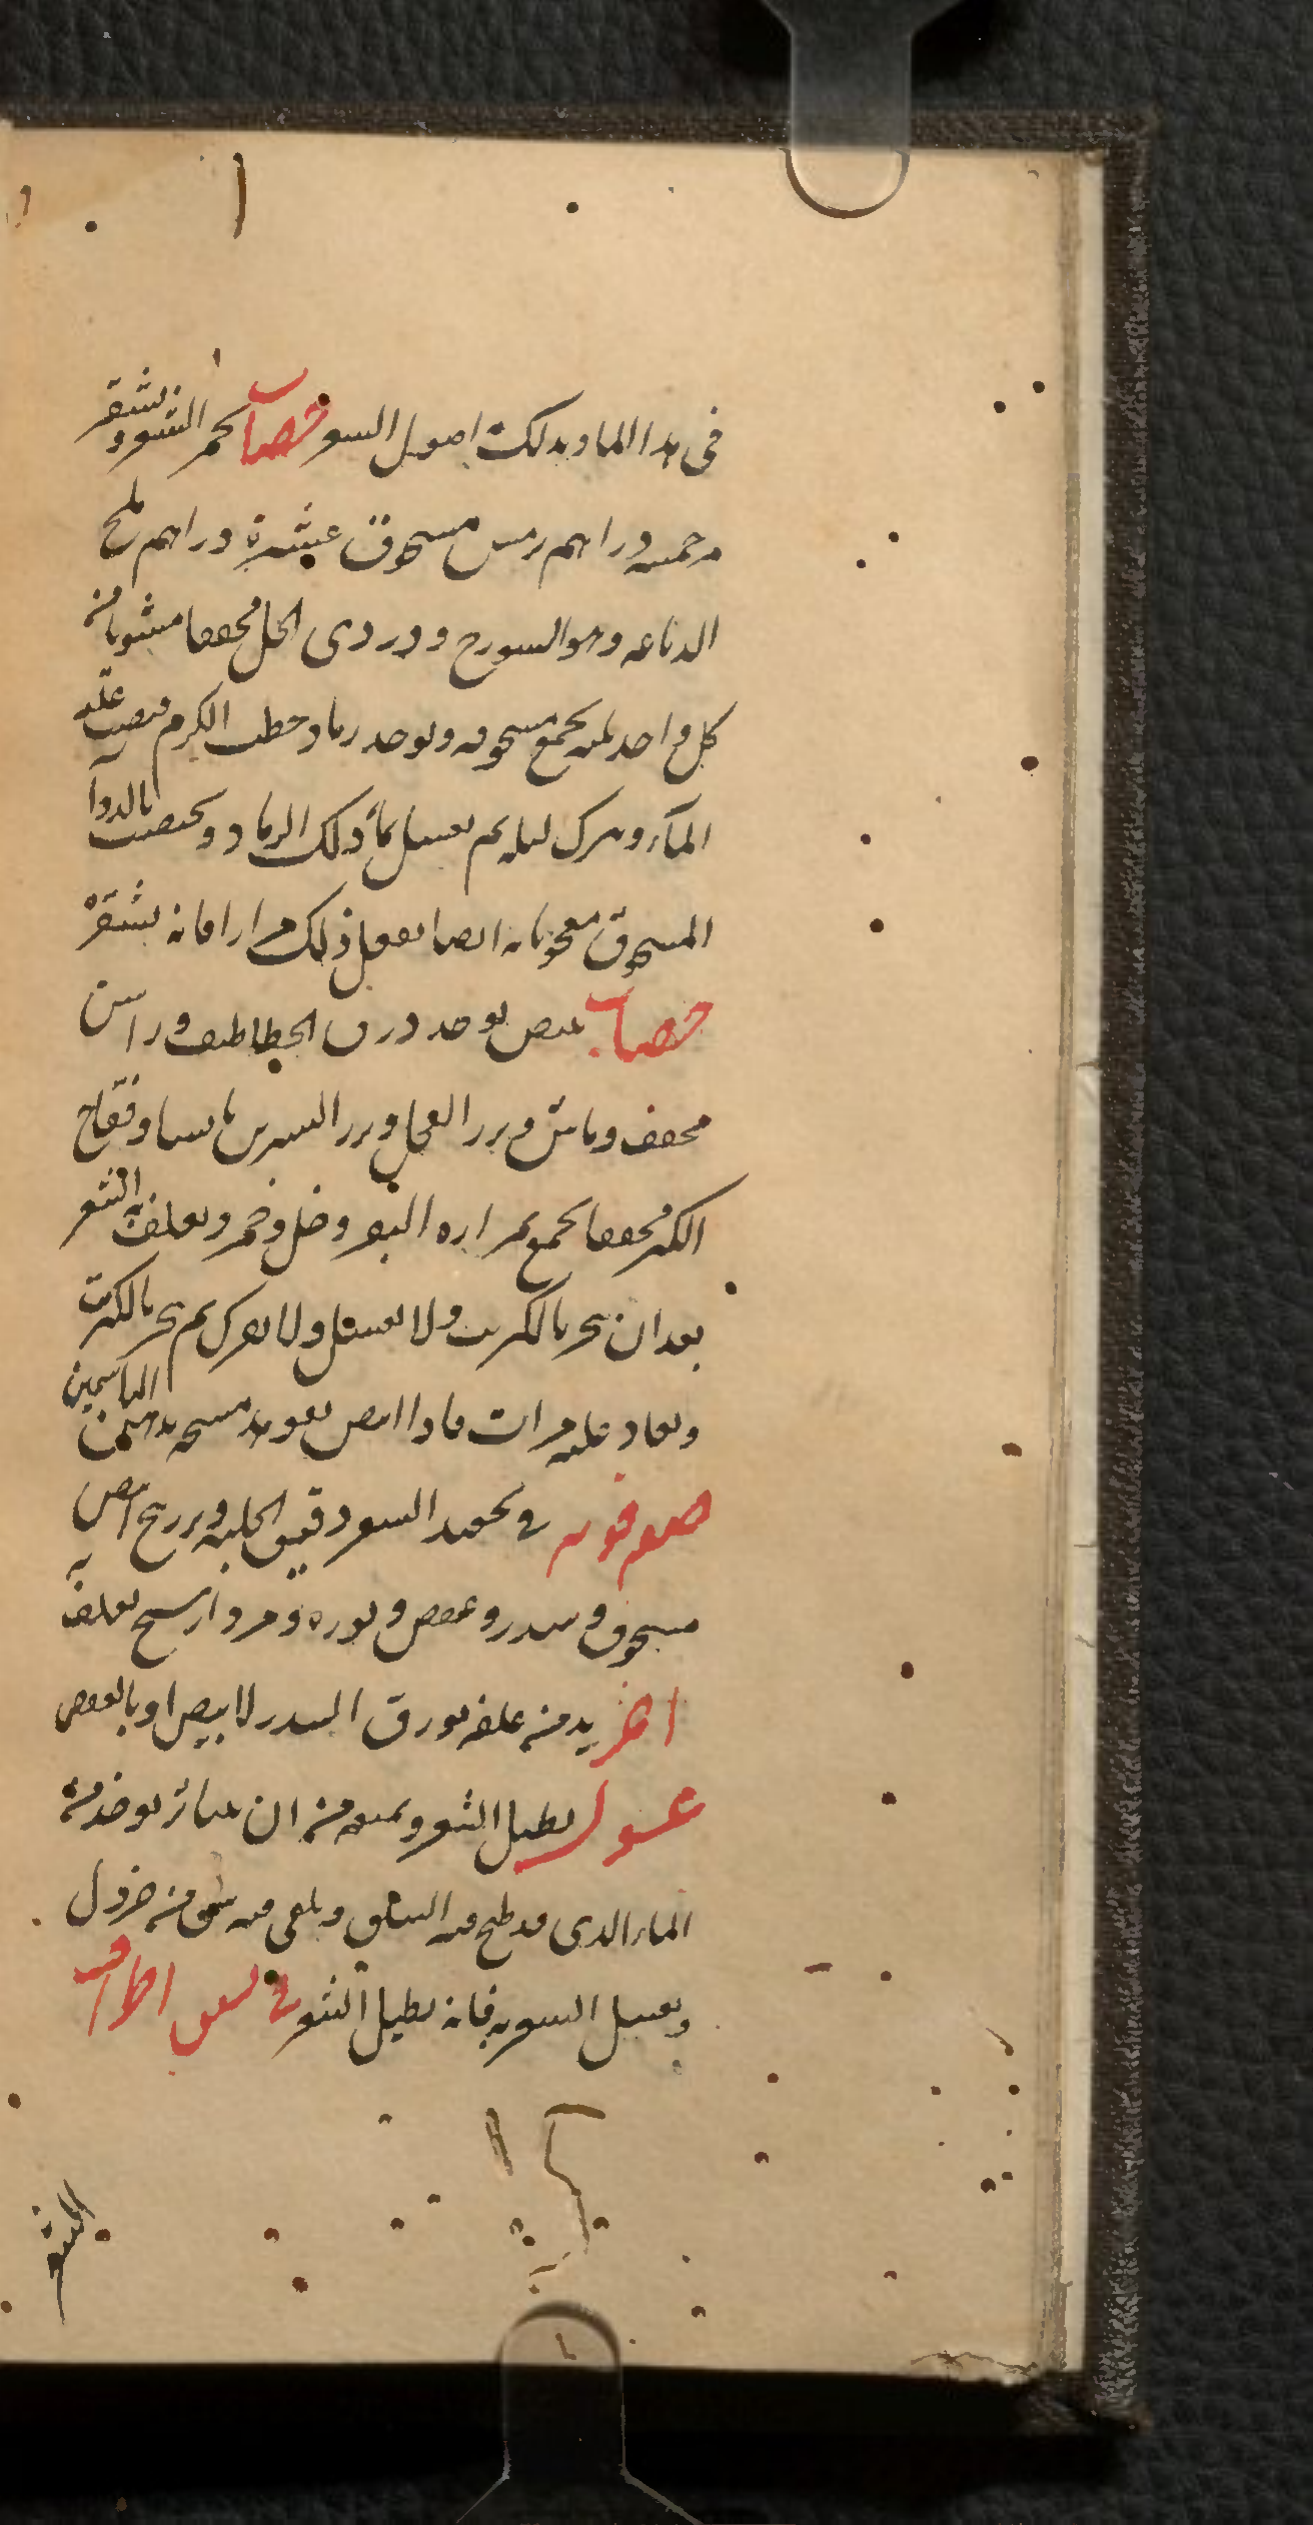 في هذا الماء ويدلك اصول الشعر خضاب يحمر الشعر ويشقر
مر خمسه دراهم ترمس مسحوق عشرة دراهم ملح
الدباغه وهو السورج ودردى الخل مجففا مشويا من
كل واحد ثلثه يجمع مسحوقه ويوخد رماد حطب الكرم فيصب عليه
الماء ويترك ليله ثم يغسل بماء ذلك الرماد ويختضب بالدوا
المسحوق معجونا به ايضا يفعل ذلك مرارا فانه يشقر
خضاب مبيض يوخد ذرق الخطاطيف وراسن
مجفف وماش وبزر الفجل وبزر النسرين يابسا وفقاح
الكبر مجففا يجمع بمراره البقر وخل وخمر ويغلف به الشعر
بعد ان يبخر بالكبريت ولا يغسل ولا يعرك ثم يبخر بالكبريت
ويعاد عليه مرات فاذا ابيض يعوهد مسحه بدهن الياسمين
صفه قويه في تجعيد الشعر دقيق الحلبه وبزر بنج ابيض
مسحوق وسدر وعفص ونوره ومرداسنج يغلف به
اخر يدمن غلفه بورق السدر الابيض او بالعفص
غسول يطيل الشعر ويمنعه من ان يتناثر يوخذ من
الماء الذى قد طبخ فيه السلق ويلقى فيه شى من خردل
ويغسل الشعر به فانه يطيل الشعر في تشقق اطراف
الشعر